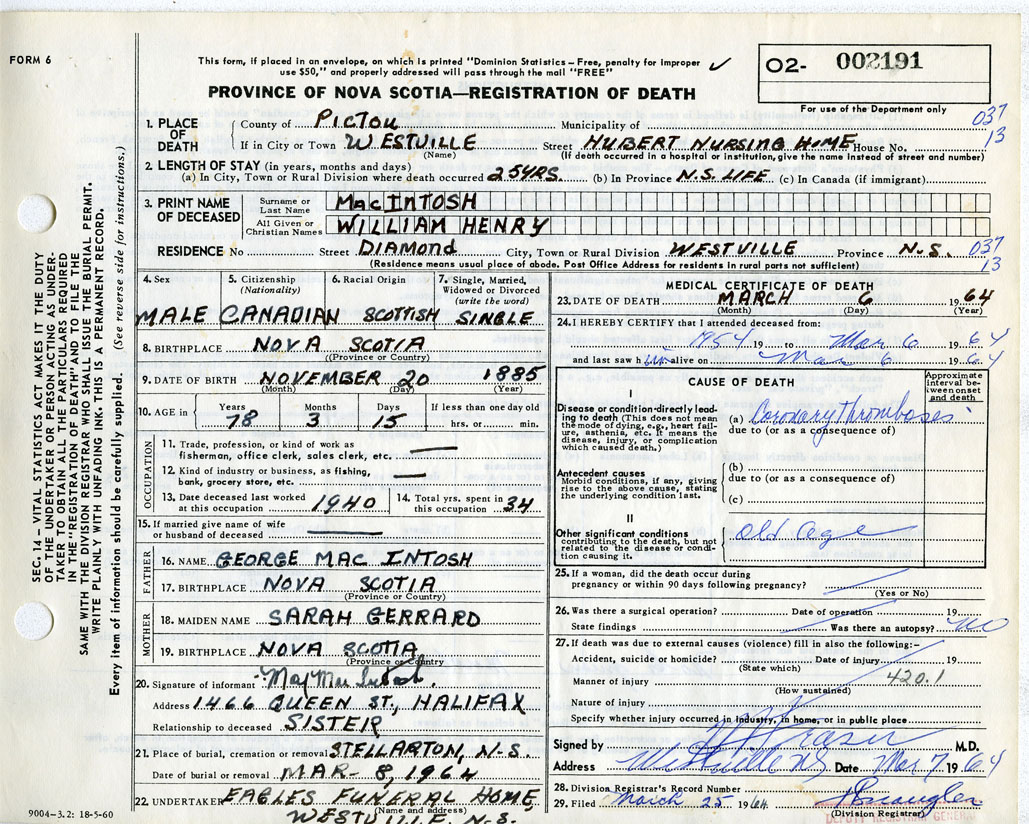 FORM 6
This form, if placed in an envelope, on which is printed "Dominion Statistics – Free, penalty for improper
use $50," and properly addressed will pass through the mail "FREE" ✓
O2- 002191
PROVINCE OF NOVA SCOTIA—REGISTRATION OF DEATH
For use of the Department only
037
13
1. PLACE OF DEATH
County of PICTOU Municipality of
If in City or Town WESTVILLE Street HUBERT NURSING HOME House No.
(Name) (If death occurred in a hospital or institution, give the name instead of street and number)
2. LENGTH OF STAY (in years, months and days)
(a) In City, Town or Rural Division where death occurred 25YRS. (b) In Province N.S. LIFE (c) In Canada (if immigrant)
3. PRINT NAME OF DECEASED
Surname or Last Name MacINTOSH
All Given or Christian Names WILLIAM HENRY
RESIDENCE No Street DIAMOND City, Town or Rural Division WESTVILLE Province N.S. 037
(Residence means usual place of abode. Post Office Address for residents in rural parts not sufficient) 13
4. Sex 5. Citizenship (Nationality) 6. Racial Origin 7. Single, Married, Widowed or Divorced (write the word)
MALE CANADIAN SCOTTISH SINGLE
8. BIRTHPLACE NOVA SCOTIA
(Province or Country)
9. DATE OF BIRTH NOVEMBER 20 1885
(Month) (Day) (Year)
10. AGE in Years Months Days If less than one day old
78 3 15 hrs. or min.
OCCUPATION
11. Trade, profession, or kind of work as
fisherman, office clerk, sales clerk, etc. —
12. Kind of industry or business, as fishing,
bank, grocery store, etc. —
13. Date deceased last worked at this occupation 1940 14. Total yrs. spent in this occupation 34
15. If married give name of wife
or husband of deceased —
FATHER
16. NAME GEORGE MAC INTOSH
17. BIRTHPLACE NOVA SCOTIA
(Province or Country)
MOTHER
18. MAIDEN NAME SARAH GERRARD
19. BIRTHPLACE NOVA SCOTIA
(Province or Country)
20. Signature of informant Mac Intosh
Address 1466 QUEEN ST., HALIFAX
Relationship to deceased SISTER
21. Place of burial, cremation or removal STELLARTON, N.S.
Date of burial or removal MAR- 8, 1964
22. UNDERTAKER EAGLES FUNERAL HOME,
(Name and address)
WESTVILLE N.S.
9004-3.2: 18-5-60
MEDICAL CERTIFICATE OF DEATH
23. DATE OF DEATH MARCH 6 1964
(Month) (Day) (Year)
24. I HEREBY CERTIFY that I attended deceased from:
1954 19 to Mar 6 1964
and last saw him alive on Mar 6 1964
CAUSE OF DEATH
Approximate interval between onset and death
I
Disease or condition directly leading to death (This does not mean the mode of dying, e.g., heart failure, asthenia, etc. It means the disease, injury, or complication which caused death.)
(a) Coronary Thromboses
due to (or as a consequence of)
Antecedent causes
Morbid conditions, if any, giving rise to the above cause, stating the underlying condition last.
(b)
due to (or as a consequence of)
(c)
II
Other significant conditions contributing to the death, but not related to the disease or condition causing it.
Old Age
25. If a woman, did the death occur during
pregnancy or within 90 days following pregnancy?
(Yes or No)
26. Was there a surgical operation? Date of operation 19
State findings Was there an autopsy? No
27. If death was due to external causes (violence) fill in also the following:–
Accident, suicide or homicide? Date of injury 19
(State which)
Manner of injury 420.1
(How sustained)
Nature of injury
Specify whether injury occurred in industry, in home, or in public place
Signed by Fraser M.D.
Address Westville NS Date Mar 7 1964
28. Division Registrar's Record Number
29. Filed March 25 1964
(Division Registrar)
DEPUTY REGISTRAR GENERAL
SEC. 14 – VITAL STATISTICS ACT MAKES IT THE DUTY
OF THE UNDERTAKER OR PERSON ACTING AS UNDER-
TAKER TO OBTAIN ALL THE PARTICULARS REQUIRED
IN THE "REGISTRATION OF DEATH" AND TO FILE THE
SAME WITH THE DIVISION REGISTRAR WHO SHALL ISSUE THE BURIAL PERMIT.
WRITE PLAINLY WITH UNFADING INK - THIS IS A PERMANENT RECORD.
Every item of information should be carefully supplied. (See reverse side for instructions.)